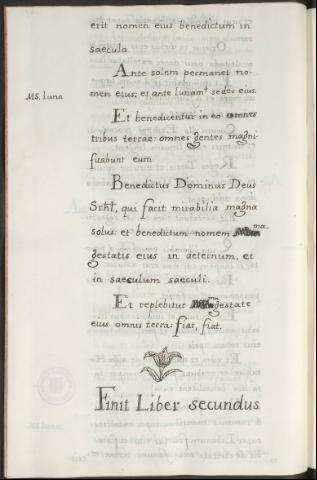 erit nomen eius benedictum in
saecula.
Ante solem permanet no-
MS. luna
men eius; et ante lunam† sedes eius.
Et benedicentur in eo omnes
tribus terrae: omnes gentes magni-
ficabunt eum
Benedictus Dominus Deus
Srhł, qui facit mirabilia magna
solus et benedictum nomem ma
gestatis eius in aeternum, et
in saeculum saeculi.
Et replebitur m gestate
eius omnis terra: fiat, fiat.
Finit Liber secundus